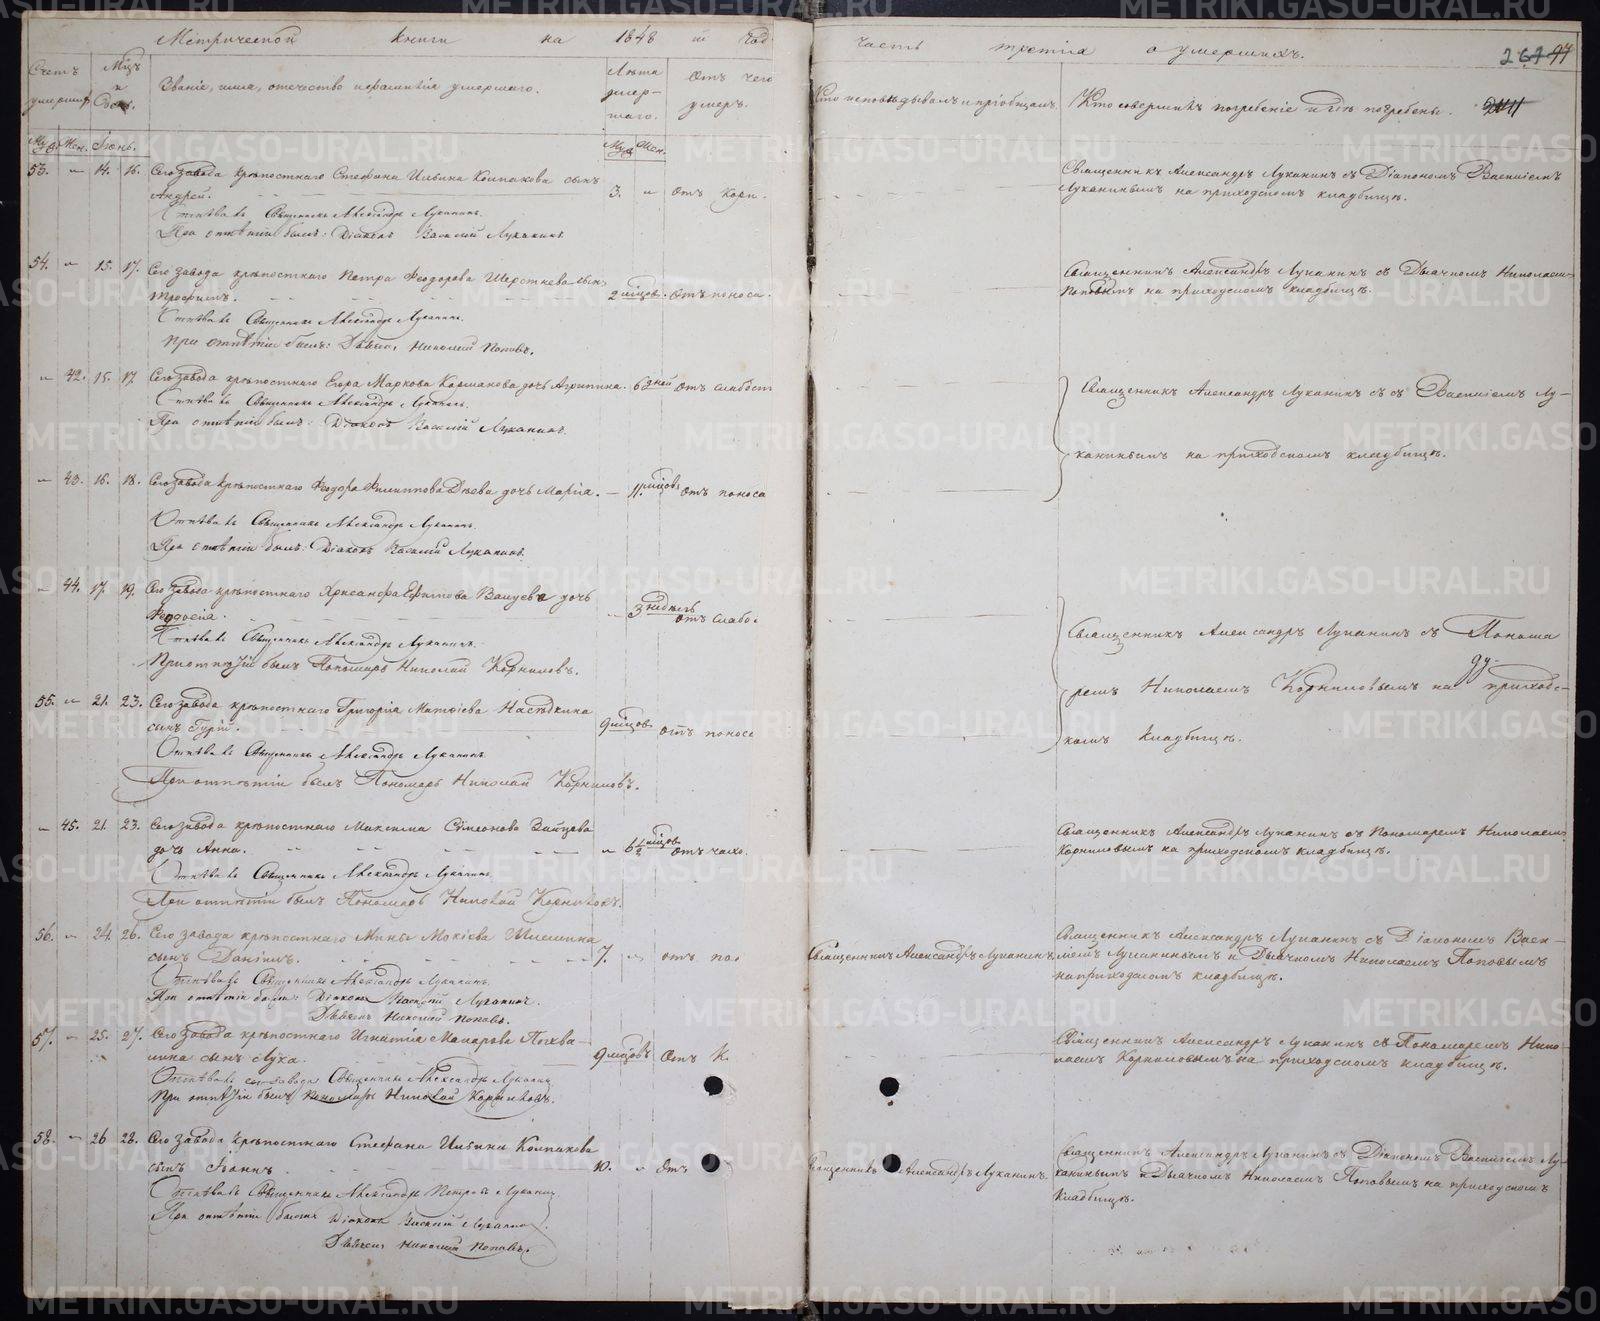 Метрической книги на 1848 й год
Счетъ умершихъ
Мѣсяцъ и день.
Званіе, имя, отечество и фамилія умершаго.
Лѣта умер-
шаго.
Отъ чего
умеръ.
Муж. Жен. Іюнь.
Муж. Жен.
53. — 14. 16. Сего завода крѣпостнаго Стефана Ильина Колпакова сынъ
Андрей. 3. — отъ кори.
Отпѣвалъ Священникъ Александръ Луканинъ.
При отпѣтіи былъ: Діаконъ Василій Луканинъ.
54. — 15. 17. Сего завода крѣпостнаго Петра Феодорова Шерстнева сынъ
Трофимъ. 2 мѣсцов. отъ поноса.
Отпѣвалъ Священникъ Александръ Луканинъ.
При отпѣтіи былъ: Дьячекъ Николай Поповъ.
— 42. 15. 17 Сего завода крѣпостнаго Егора Маркова Колмакова дочь Агрипина. 6 дней отъ слабост
Отпѣвалъ Священникъ Александръ Луканинъ.
При отпѣтіи былъ: Діаконъ Василій Луканинъ.
— 43. 16. 18. Сего завода крѣпостнаго Феодора Филиппова дочь Марія. — 11. мѣсцов. отъ поноса
Отпѣвалъ Священникъ Александръ Луканинъ.
При отпѣтіи былъ: Діаконъ Василій Луканинъ.
— 44. 17. 19. Сего завода крѣпостнаго Хрисанфа Ефимова дочь
Феодосія. — 3 недѣль отъ слабо.
Отпѣвалъ Священникъ Александръ Луканинъ.
При отпѣтіи былъ Пономарь Николай Корниловъ.
55. — 21. 23. Сего завода крѣпостнаго Григорія Матвіева Насѣдкина
сынъ Гурій. 9 мѣсцов. отъ поноса
Отпѣвалъ Священникъ Александръ Луканинъ.
При отпѣтіи былъ Пономарь Николай Корниловъ.
— 45. 21. 23. Сего завода крѣпостнаго Максима Симеонова Зайцева
дочь Анна. — 6½ мѣсцов. отъ чахо.
Отпѣвалъ Священникъ Александръ Луканинъ.
При отпѣтіи былъ Пономарь Николай Корниловъ.
56. — 24. 26. Сего завода крѣпостнаго Мины Мокіева
сынъ Даніилъ. 7. — отъ по
Отпѣвалъ Священникъ Александръ Луканинъ.
При отпѣтіи были: Діаконъ Василій Луканинъ.
Дьячекъ Николай Поповъ.
57. — 25. 27. Сего завода крѣпостнаго Игнатія Макарова Похва-
лина сынъ Лука. 9 мѣсцовъ Отъ к.
Отпѣвалъ сего завода Священникъ Александръ Луканин
При отпѣтіи былъ Пономарь Николай Корниловъ.
58. — 26 28. Сего завода крѣпостнаго Стефана Ильина Колпакова
сынъ Іоаннъ. 10. — Отъ
Отпѣвалъ Священникъ Александръ Петровъ Луканин
При отпѣтіи были Діаконъ Василій Луканин
Дьячекъ Николай Поповъ.
часть третія о умершихъ.
Кто исповѣдывалъ и пріобщалъ.
Кто совершилъ погребеніе и гдѣ погребены.
Священникъ Александръ Луканинъ съ Діакономъ Василіемъ
Луканинымъ на приходскомъ кладбищѣ.
Священникъ Александръ Луканинъ съ Дьячкомъ Николаем
Поповымъ на приходскомъ кладбищѣ.
Священникъ Александръ Луканинъ съ Василіемъ Лу-
канинымъ на приходскомъ кладбищѣ.
Священникъ Александръ Луканинъ съ Понома
ремъ Николаемъ Корниловымъ на приходс-
комъ кладбищѣ.
Священникъ Александръ Луканинъ съ Пономаремъ Николаемъ
Корниловымъ на приходскомъ кладбищѣ.
Священникъ Александръ Луканинъ.
Священникъ Александръ Луканинъ съ Діакономъ Васи-
ліемъ Луканинымъ и Дьячкомъ Николаемъ Поповымъ
на приходскомъ кладбищѣ.
Священникъ Александръ Луканинъ съ Пономаремъ Нико-
лаемъ Корниловымъ на приходскомъ кладбищѣ.
Священникъ Александръ Луканинъ.
Священникъ Александръ Луканинъ съ Діакономъ Василіемъ Лу-
канинымъ и Дьячкомъ Николаемъ Поповымъ на приходскомъ
кладбищѣ.
METRIKI.GASO-URAL.RU